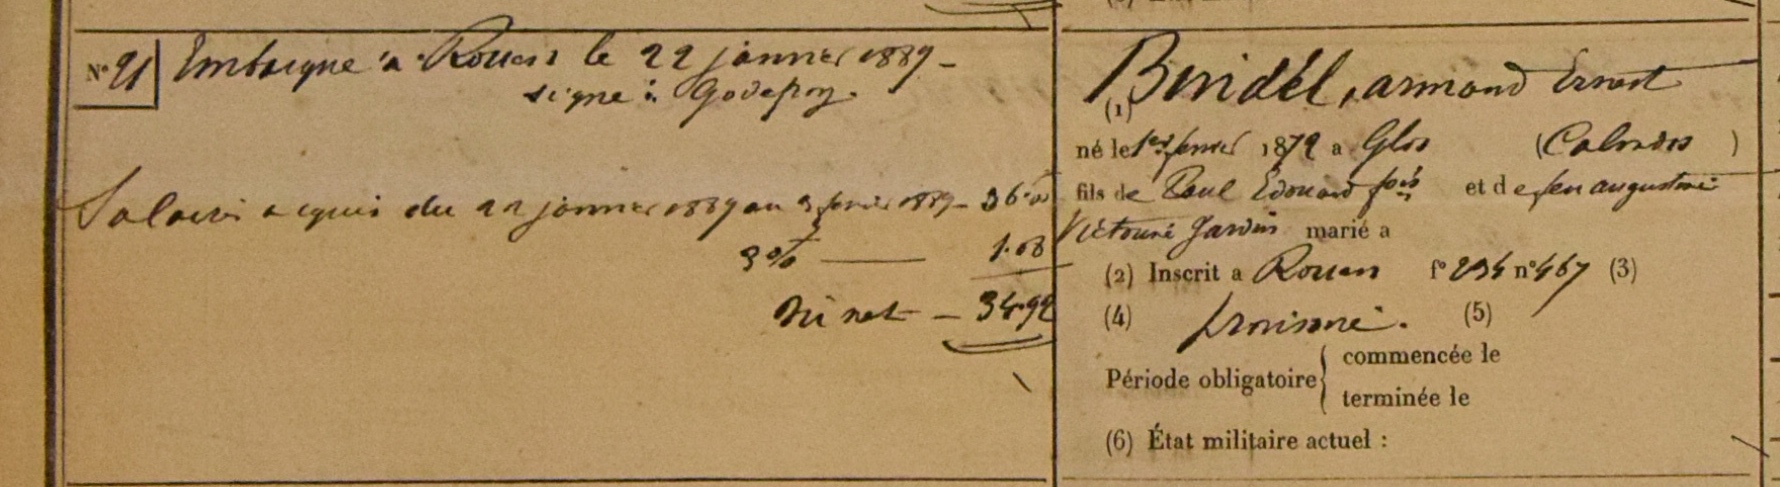 N° 21 Embarqué à Rouen le 22 janvier 1889 -
signé : Godefroy.
Salaires acquis du 22 janvier 1889 au 3 février 1889 - 36.00
3 % — 1.08
Dû net — 34.92
Buridél, armand Ernest
(1)
né le 1er février 1872 a Glos (Calvados)
fils de Paul Edouard et de feu augustine
Victorine Jardin marié a
(2) Inscrit a Rouen f° 234 n° 467 (3)
(4) provisoire. (5)
Période obligatoire
commencée le
terminée le
(6) État militaire actuel :